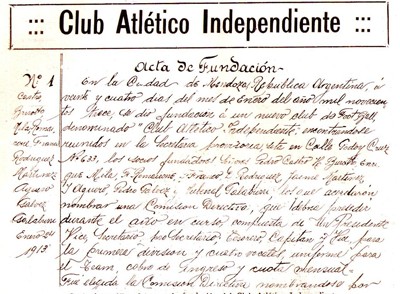 ::: Club Atlético Independiente :::
Acta de Fundación
Nº 1
Castro
Gnesotto
Mila, Roman
Franc
Rodriguez
Martinez
Aguero
Galvez
Calabrese
Enero 24
1913
En la Ciudad de Mendoza, Republica Argentina, á
veinte y cuatro dias del mes de Enero del año mil novecien
tos trece, se dio fundación á un nuevo club de Foot-Ball,
denominado "Club Atlético Independiente", encontrándose
reunidos en la Secretaria provisoria sita en Calle Godoy Cruz
Nº 633, los socios fundadores Señores Pedro Castro, H. Gnesotto, Enri
que Mila, Franc Rodriguez, Jaime Martinez
y Aguero, Pedro Galvez i Calabrese los que acordaron
nombrar una Comision Directiva, que deberá presidir
durante el año en curso, compuesta de un Presidente
Vice, Secretario, pro Secretario, Tesorero, Capitan y Vice, para
la primera division y cuatro vocales, uniforme para
el Team, cobro de Ingreso y cuota mensual.
Fué elegida la Comision Directiva nombrandose por